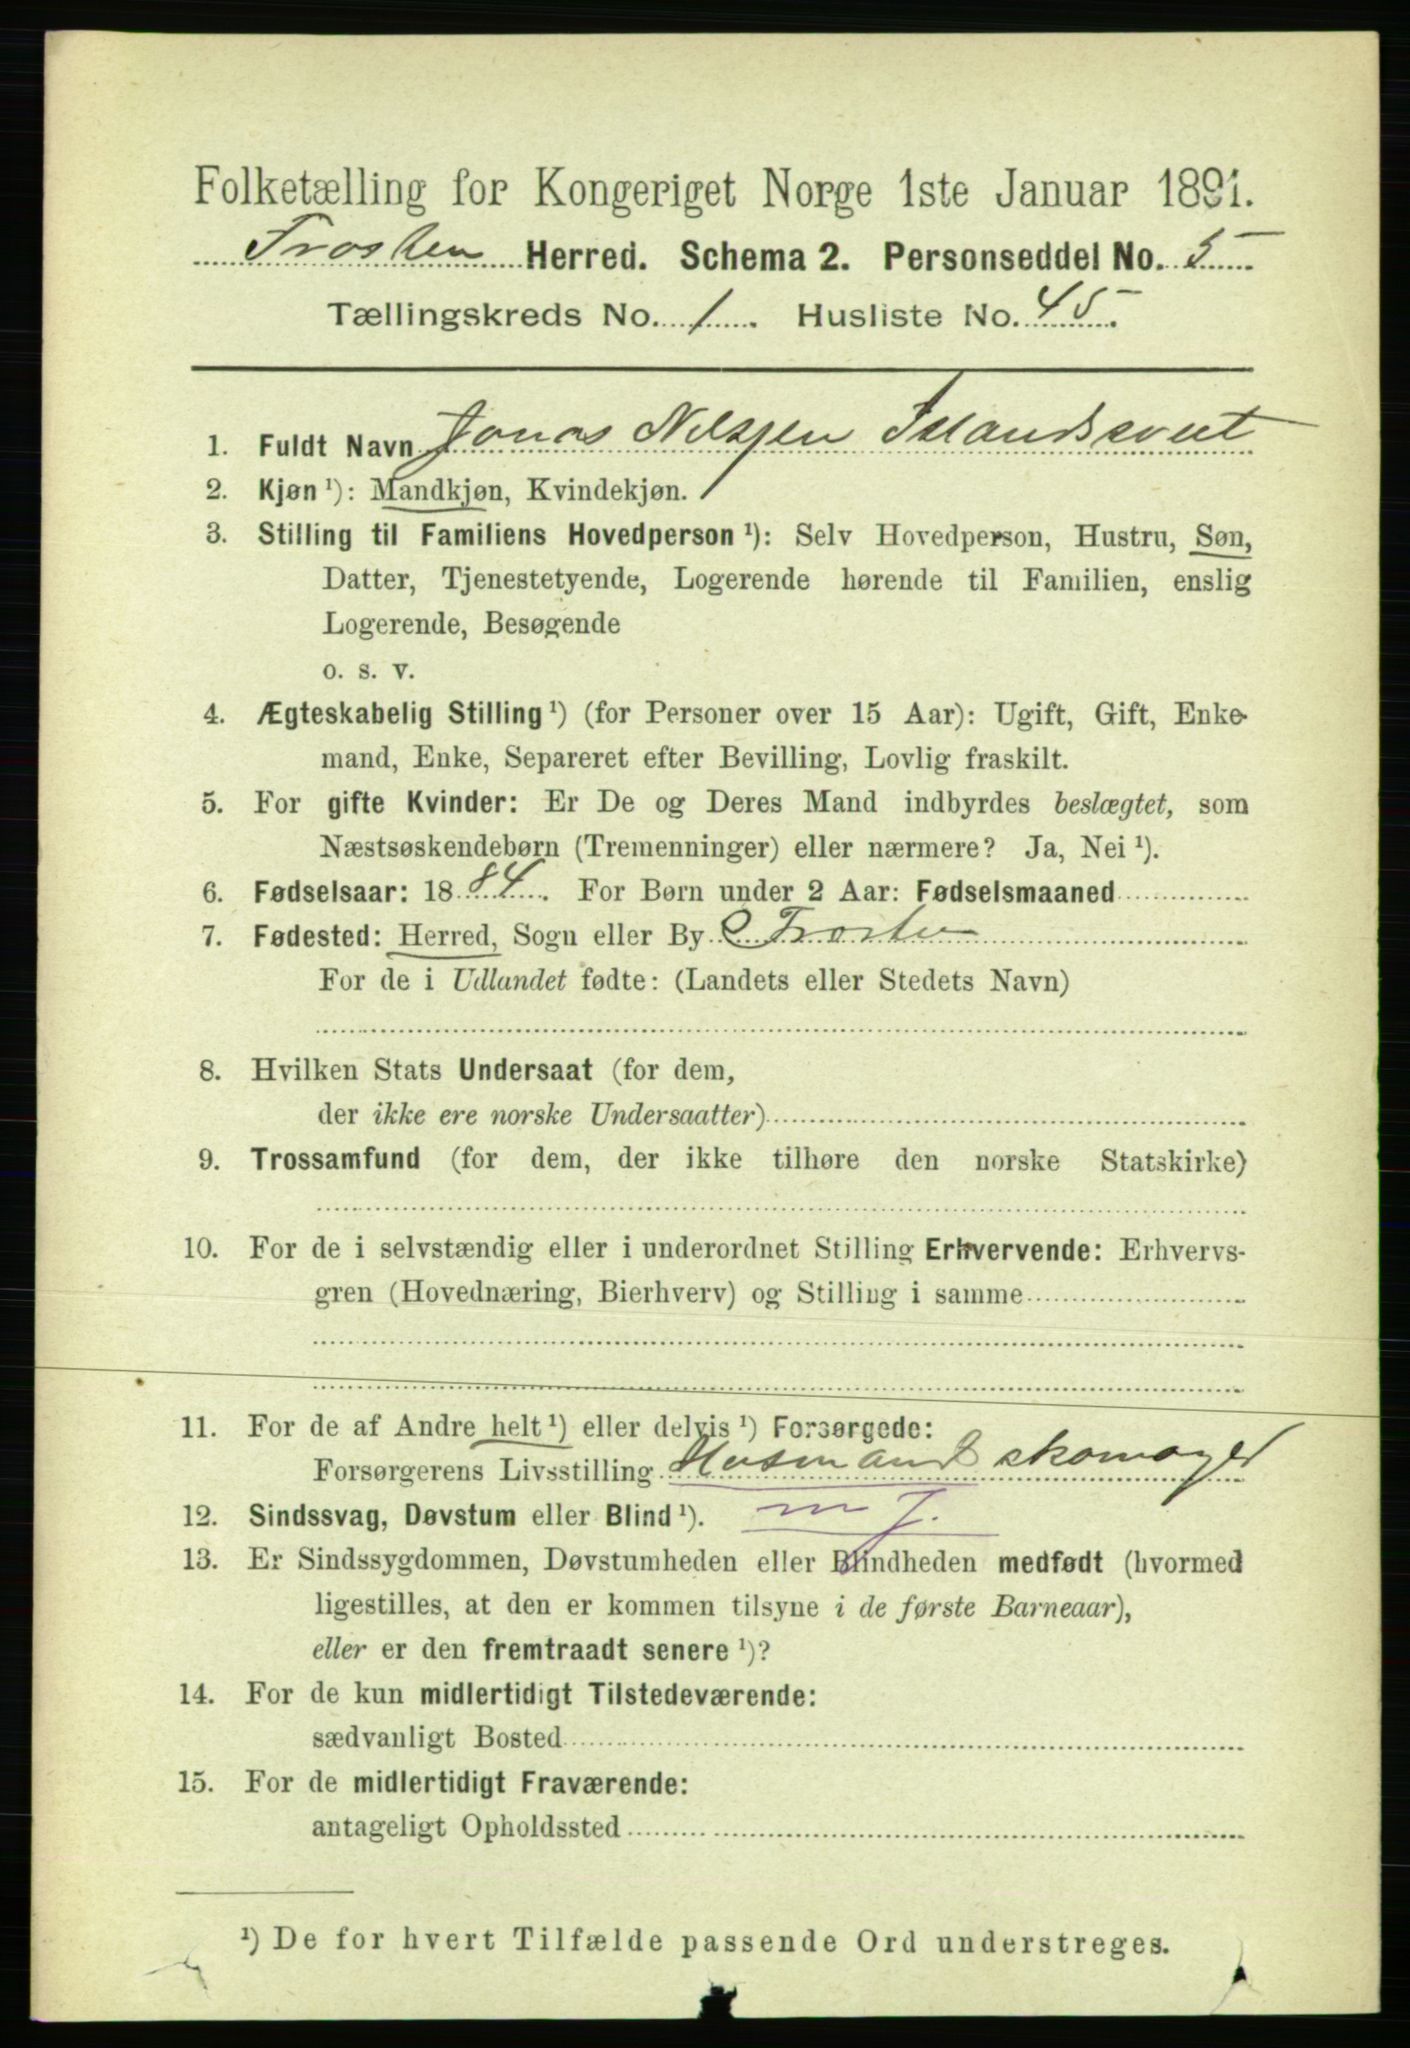 Folketælling for Kongeriget Norge 1ste Januar 1891.
Frosten Herred. Schema 2. Personseddel No. 5
Tællingskreds No. 1. Husliste No. 45.
1. Fuldt Navn Jonas Nilsen
2. Kjøn ¹): Mandkjøn, Kvindekjøn.
3. Stilling til Familiens Hovedperson ¹): Selv Hovedperson, Hustru, Søn,
Datter, Tjenestetyende, Logerende hørende til Familien, enslig
Logerende, Besøgende
o. s. v.
4. Ægteskabelig Stilling ¹) (for Personer over 15 Aar): Ugift, Gift, Enke-
mand, Enke, Separeret efter Bevilling, Lovlig fraskilt.
5. For gifte Kvinder: Er De og Deres Mand indbyrdes beslægtet, som
Næstsøskendebørn (Tremenninger) eller nærmere? Ja, Nei ¹).
6. Fødselsaar: 1884. For Børn under 2 Aar: Fødselsmaaned
7. Fødested: Herred, Sogn eller By Frosten
For de i Udlandet fødte: (Landets eller Stedets Navn)
8. Hvilken Stats Undersaat (for dem,
der ikke ere norske Undersaatter)
9. Trossamfund (for dem, der ikke tilhøre den norske Statskirke)
10. For de i selvstændig eller i underordnet Stilling Erhvervende: Erhvervs-
gren (Hovednæring, Bierhverv) og Stilling i samme
11. For de af Andre helt ¹) eller delvis ¹) Forsørgede:
Forsørgerens Livsstilling Husmand skomager
12. Sindssvag, Døvstum eller Blind ¹). m J.
13. Er Sindssygdommen, Døvstumheden eller Blindheden medfødt (hvormed
ligestilles, at den er kommen tilsyne i de første Barneaar),
eller er den fremtraadt senere ¹)?
14. For de kun midlertidigt Tilstedeværende:
sædvanligt Bosted
15. For de midlertidigt Fraværende:
antageligt Opholdssted
¹) De for hvert Tilfælde passende Ord understreges.